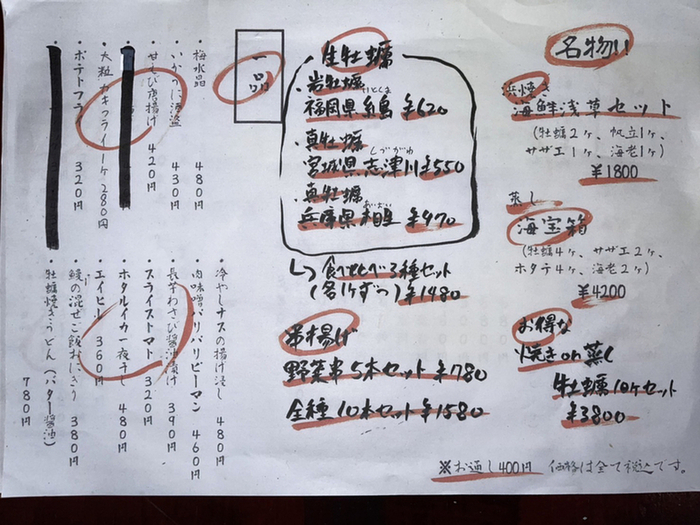 名物い
浜焼き
海鮮浅草セット
(牡蠣2ヶ、帆立1ヶ、
サザエ1ヶ、海老1ヶ)
¥1800
蒸し
海宝箱
(牡蠣4ヶ、サザエ2ヶ、
ホタテ4ヶ、海老2ヶ)
¥4200
お得な
焼き or 蒸し
牡蠣10ヶセット
¥3800
※お通し400円 価格は全て税込です。
・生牡蠣
・岩牡蠣
いとしま
福岡県糸島 ¥620
・真牡蠣
しづがわ
宮城県志津川 ¥550
・真牡蠣
あいおい
兵庫県相生 ¥470
↳食べくらべ3種セット
(各1ヶずつ) ¥1480
串揚げ
野菜串5本セット ¥780
全種10本セット ¥1580
一品
・梅水晶 480円
・いかのに酒盗 430円
・甘えび唐揚げ 420円
・大粒カキフライ1ヶ280円
・ポテトフライ 320円
・冷やしナスの揚げ浸し 480円
・肉味噌パリパリピーマン 460円
・長芋わさび醤油漬け 390円
・スライストマト 320円
・ホタルイカ一夜干し 480円
・エイヒレ 360円
・鰻の混ぜご飯おにぎり 380円
・牡蠣焼きうどん(バター醤油) 780円